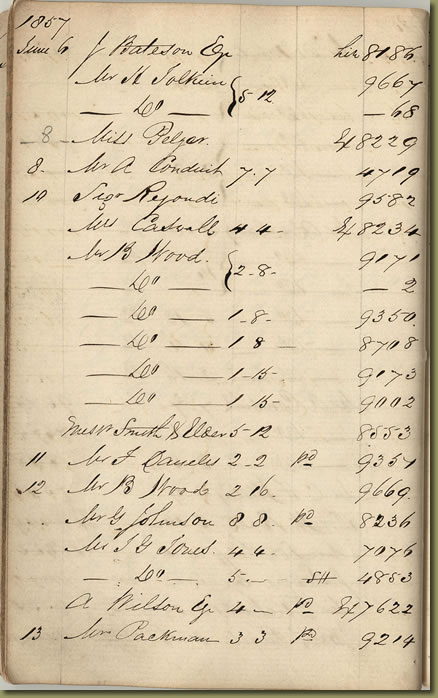 1857
June 6 J Bateson Esq hire 8186
Mr H Tolkien { 5-12 9667
— Do — — 68
8 Miss Pelzer. Ex 8229
8. Mr A Conduit 7.7 4719
10 Sigr Regondi 9582
Mrs Caswall 4 4- Ex 8234
Mr B Wood. { 2-8- 9171
— Do — — 2
— Do — 1-8- 9350.
— Do — 1 8 — 8708
— Do — 1-15- 9073
— Do — 1 15- 9002
Messrs Smith & Elder 5-12 8553
11 Mr F Daniels 2-2 pd 9357
12 Mr B Wood 2 16. 9669.
Mr G Johnson 8 8. pd 8236
Mr J G Jones. 4 4- 7076
— Do — 5.— SH 4853
A Wilson Esq 4 — pd Ex 7622
13 Mrs Packman 3 3 pd 9214